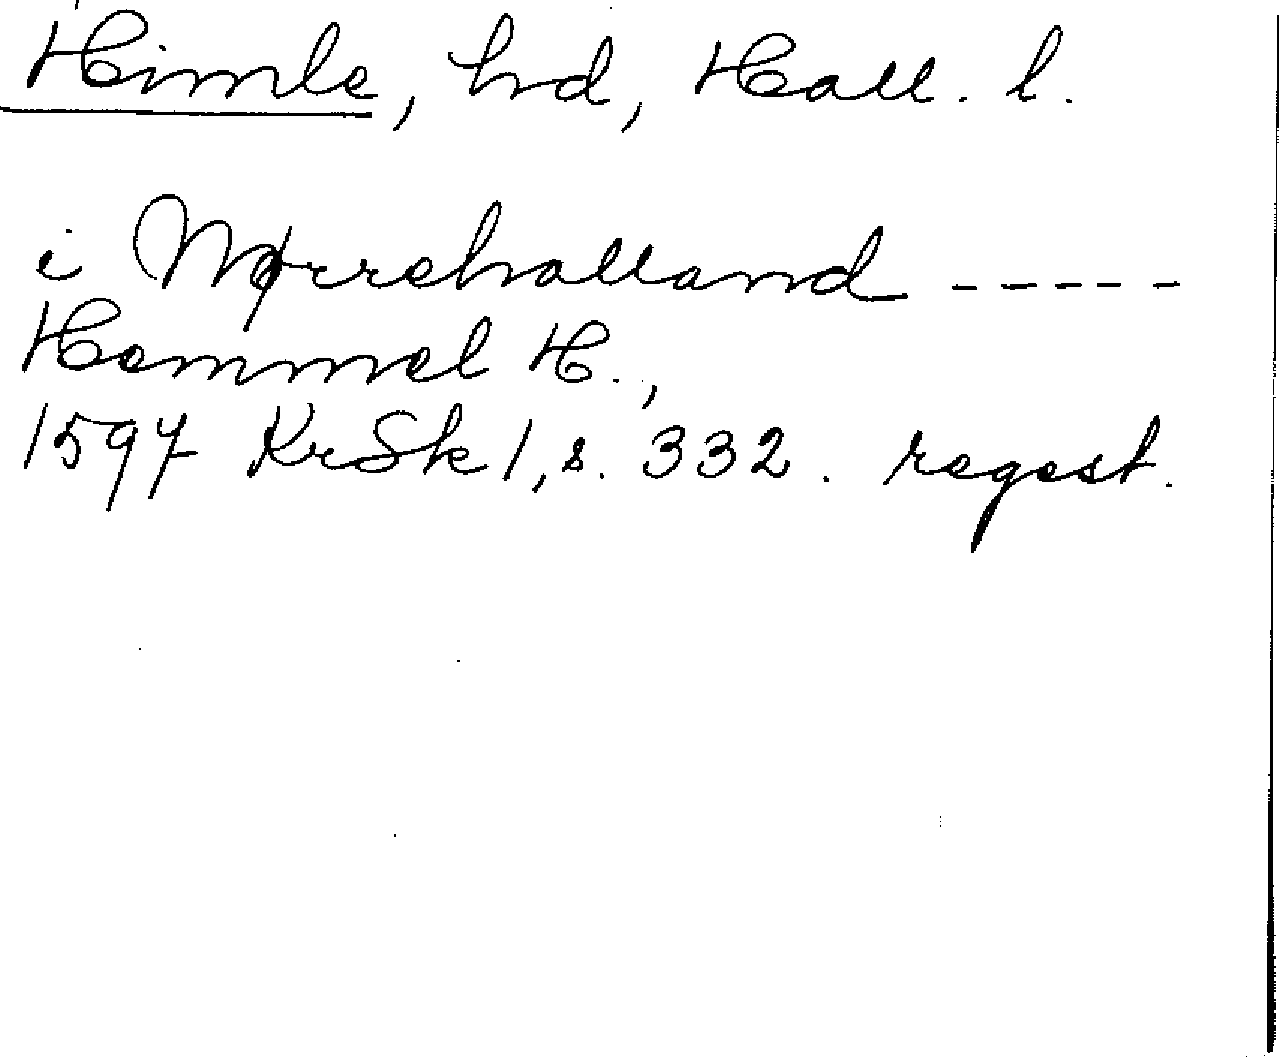 Himle, hd, Hall. l.
i Nørrehalland -----
Hemmel H.,
1597 KrSk 1, s. 332. regest.